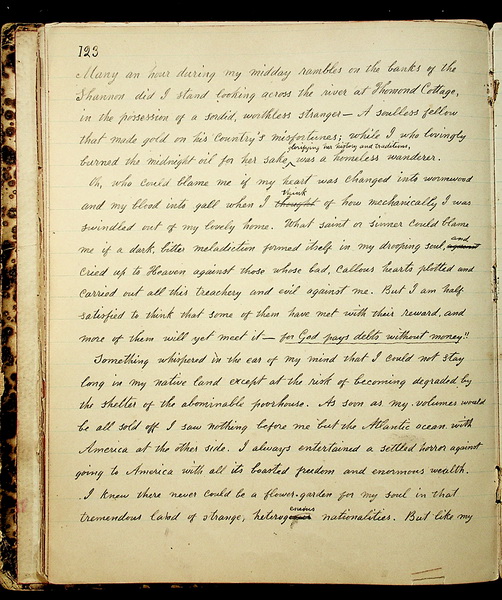 123
Many an hour during my midday rambles on the banks of the
Shannon did I stand looking across the river at Thomond Cottage,
in the possession of a sordid, worthless stranger — A soulless fellow
that made gold on his Country's misfortunes; while I who lovingly
clarifying her history and traditions,
burned the midnight oil for her sake, was a homeless wanderer.
Oh, who could blame me if my heart was changed into wormwood
think
and my blood into gall when I thought of how mechanically I was
swindled out of my lovely home. What saint or sinner could blame
me if a dark, bitter malediction formed itself in my drooping soul,
and
cried up to Heaven against those whose bad, callous hearts plotted and
carried out all this treachery and evil against me. But I am half
satisfied to think that some of them have met with their reward, and
more of them will yet meet it — for God pays debts without money!!
Something whispered in the ear of my mind that I could not stay
long in my native land except at the risk of becoming degraded by
the shelter of the abominable poorhouse. As soon as my volumes would
be all sold off I saw nothing before me but the Atlantic ocean with
America at the other side. I always entertained a settled horror against
going to America with all its boasted freedom and enormous wealth.
I knew there never could be a flower-garden for my soul in that
eneous
tremendous land of strange, heterog nationalities. But like my